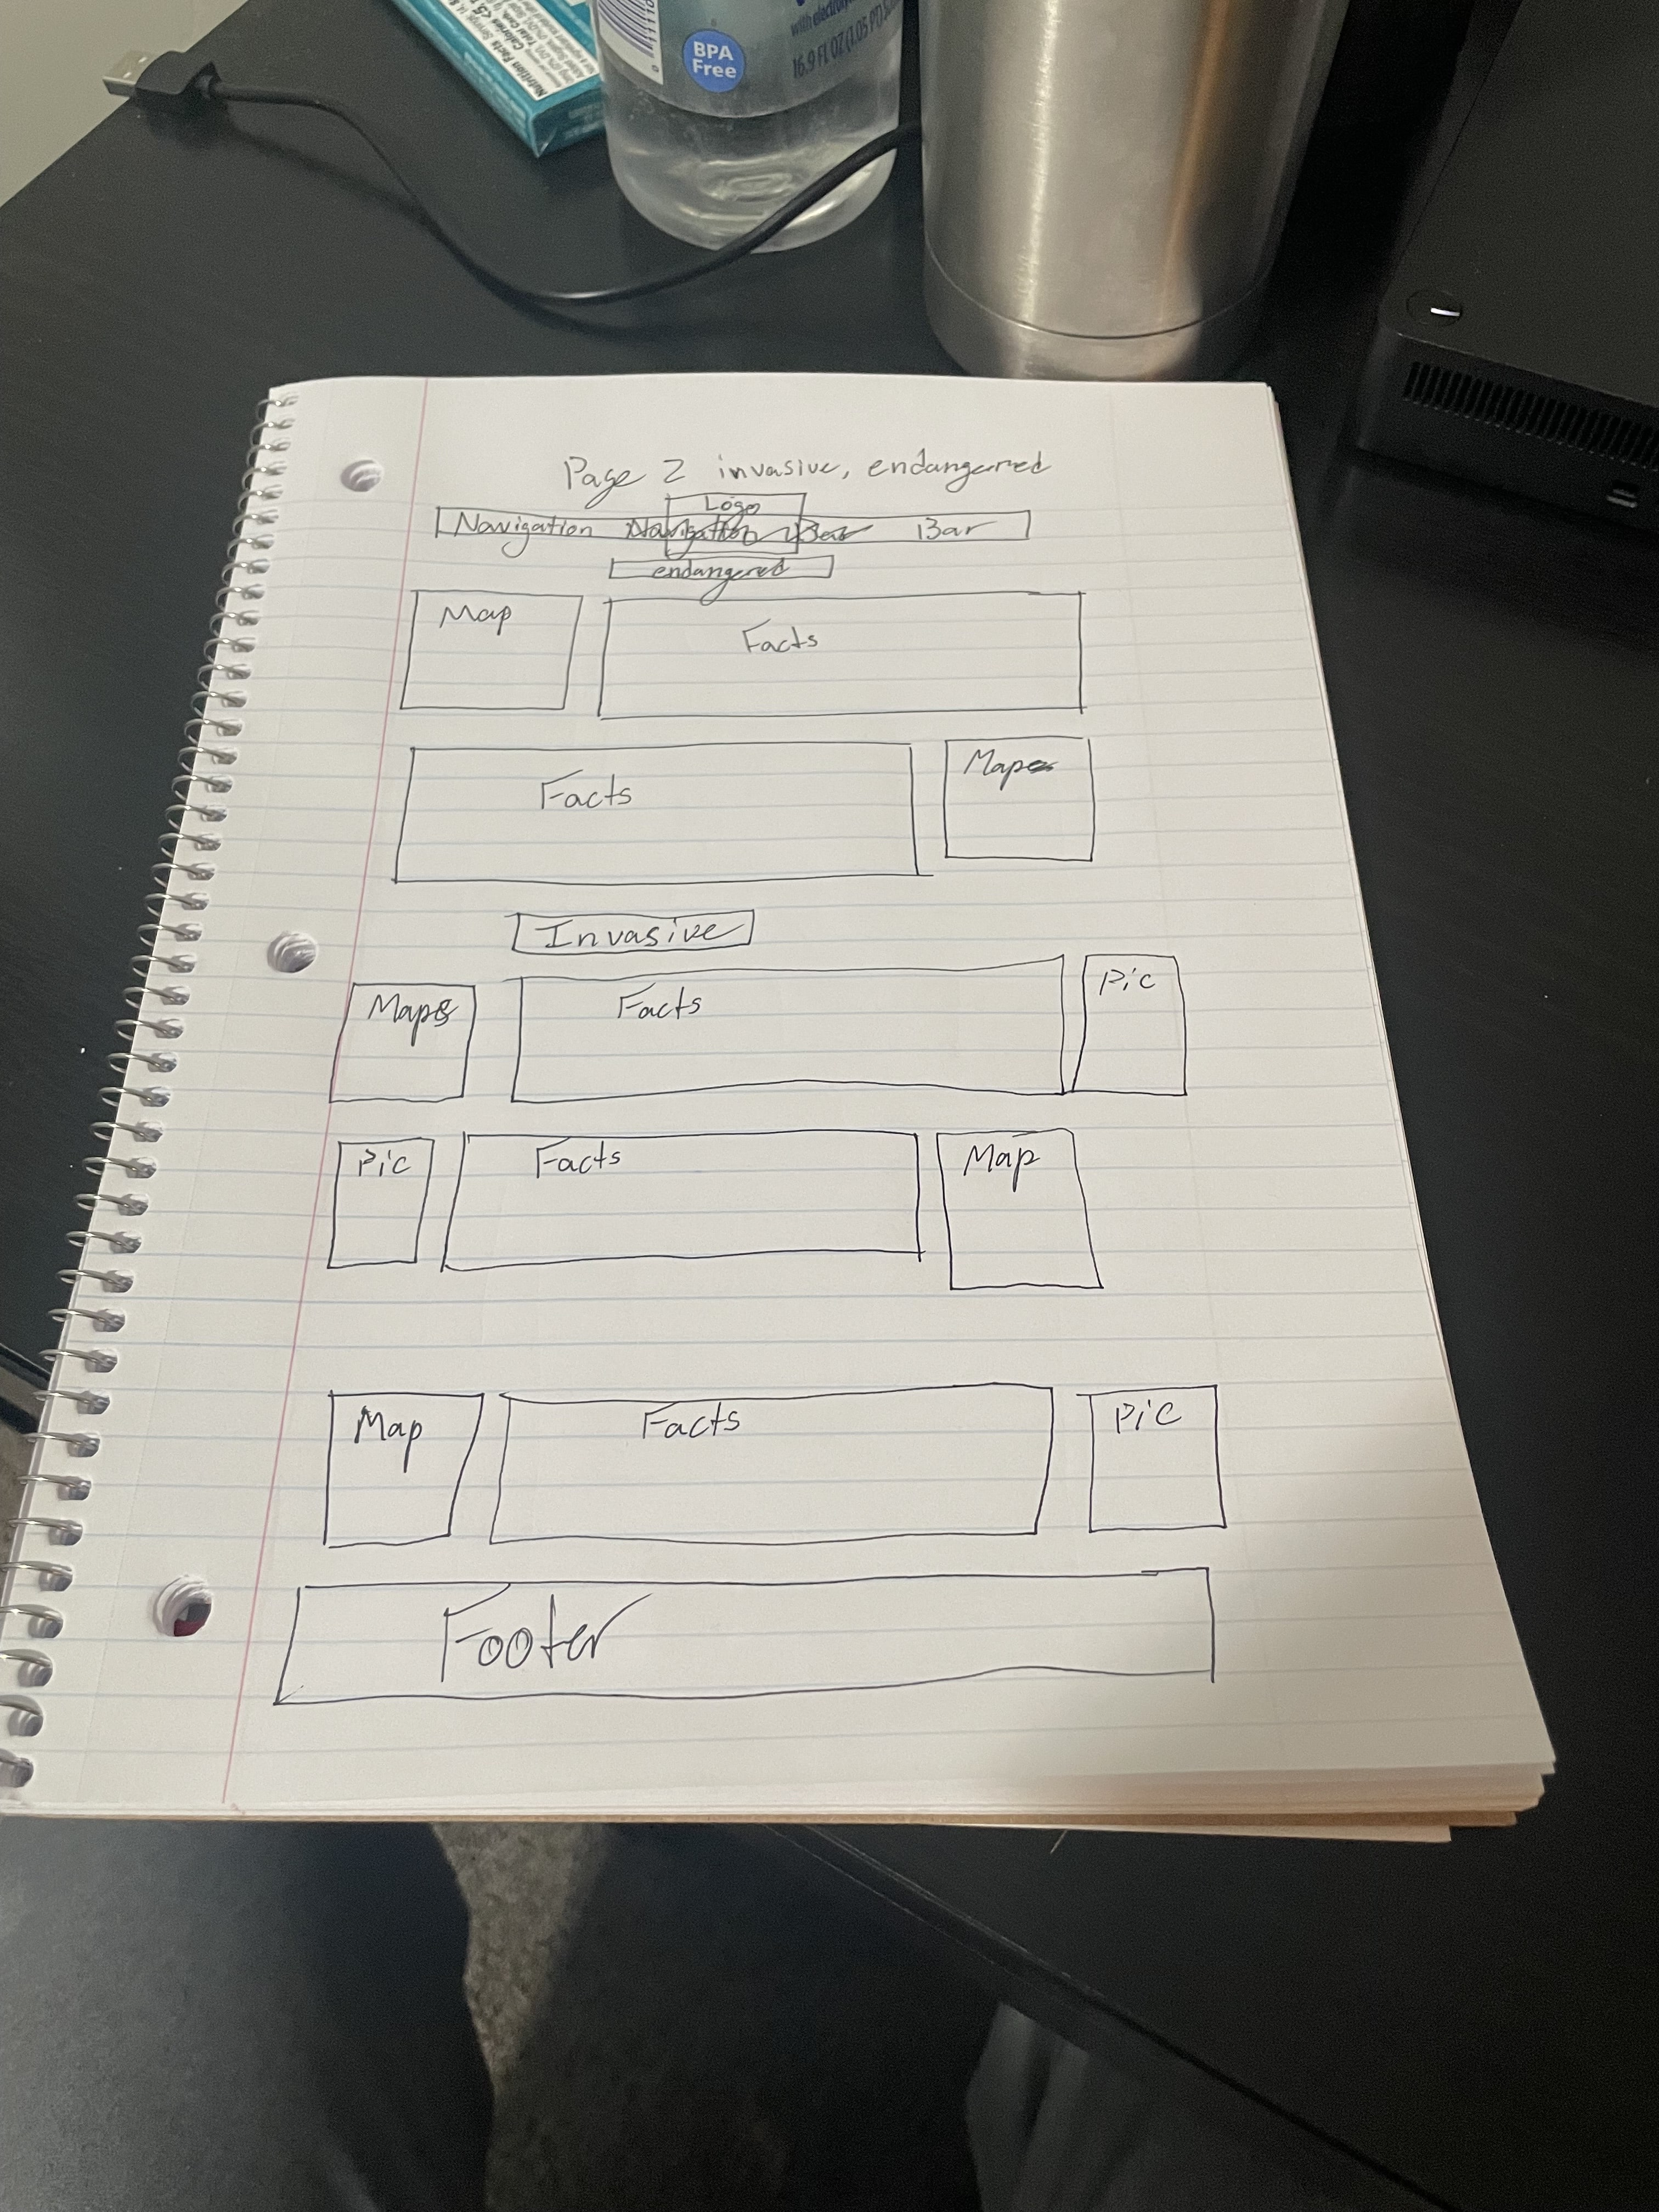 Nutrition Facts
BPA
Free
with electroly
16.9 FL OZ (1.05 PT)
Page 2 invasive, endangered
Logo
Navigation Navigation Bar Bar
endangered
Map Facts
Facts Map
Invasive
Maps Facts Pic
Pic Facts Map
Map Facts Pic
Footer